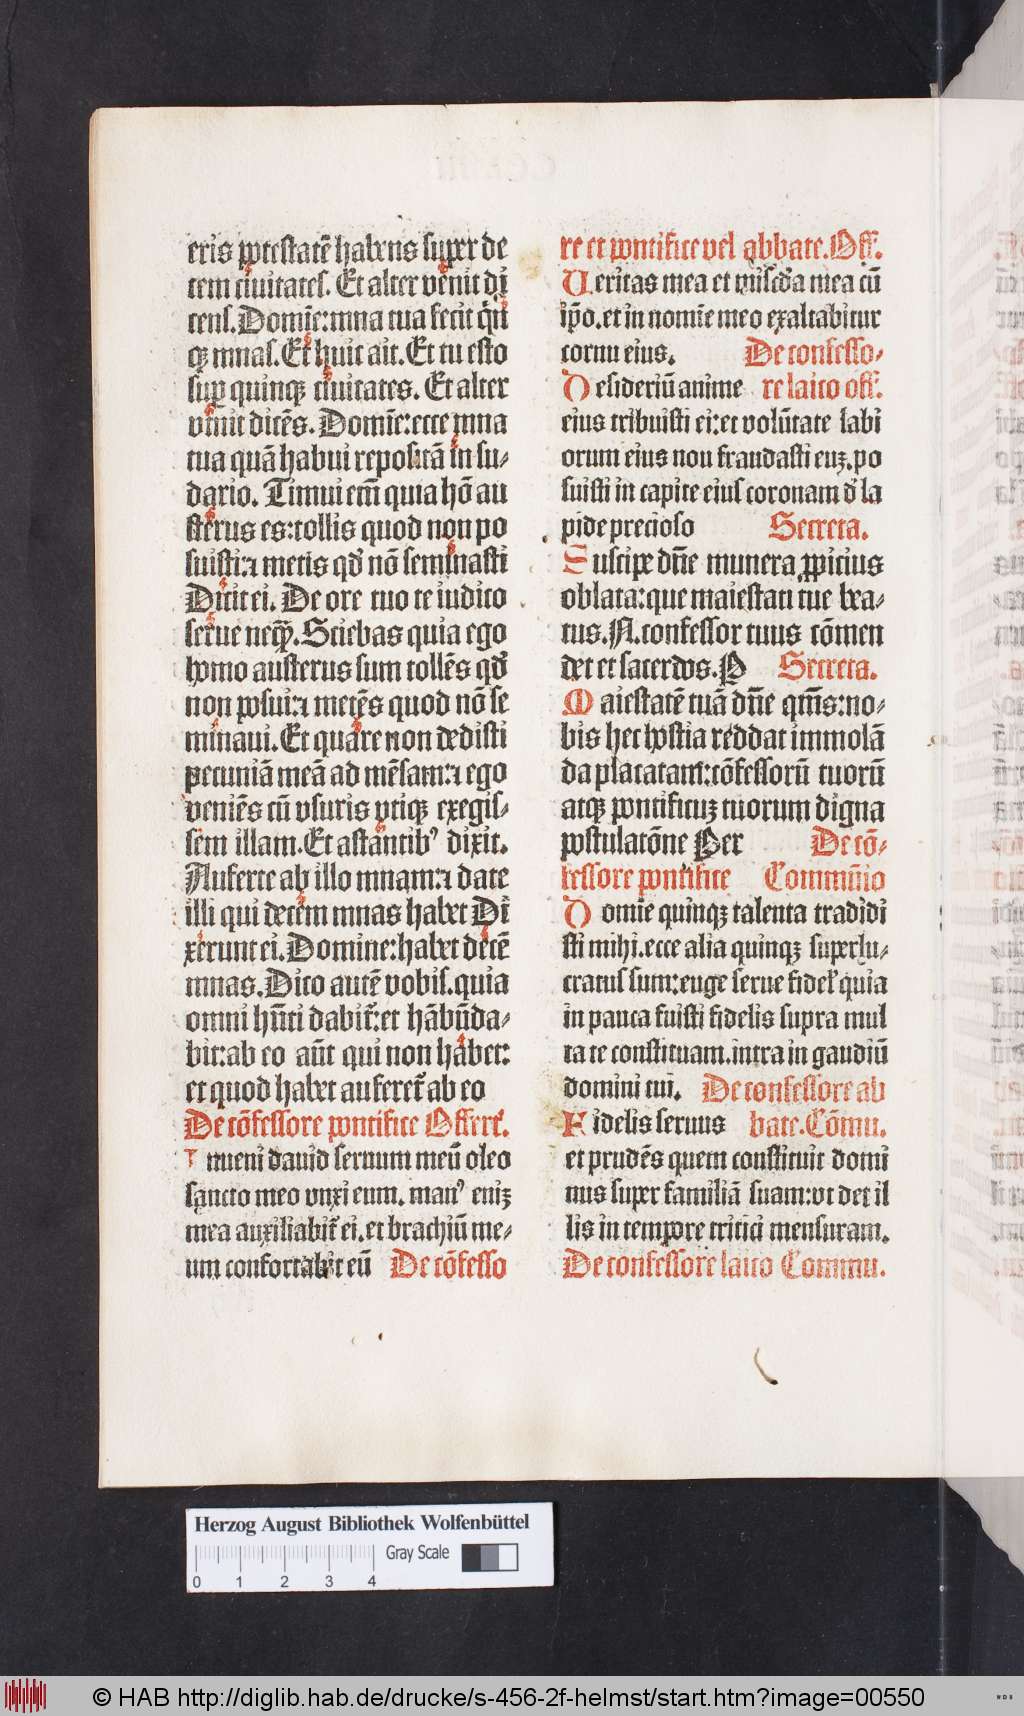 eris ptestatē habens super de
cem ciuitates. Et alter venit di
cens. Domīe: mna tua fecit q̄ni
q̨ mnas. Et huic ait. Et tu esto
suꝑ quinq̨ ciuitates. Et alter
venit dicēs. Domīe: ecce mna
tua quā habui repositā in su⸗
dario. Timui em̄ quia hō au
sterus es: tollis quod non po
suisti: ⁊ metis qd̕ nō seminasti
Dicit ei. De ore tuo te iudico
serue neq̄. Sciebas quia ego
homo austerus sum tollēs qd̕
non posui: ⁊ metēs quod nō se
minaui. Et quare non dedisti
pecuniā meā ad mēsam: ⁊ ego
veniēs cū vsuris vtiq̨ exegis⸗
sem illam. Et astantib⁹ dixit.
Auferte ab illo mnam: ⁊ date
illi qui decem mnas habet Di
xerunt ei. Domine: habet decē
mnas. Dico autē vobis. quia
omni hn̄ti dabit̄: et hābūda⸗
bit: ab eo aūt qui non habet:
et quod habet auferet̄ ab eo
De cōfessore pontifice Offert̄.
Inueni dauid seruum meū oleo
sancto meo vnxi eum. man⁹ eniȝ
mea auxiliabit̄ ei. et brachiū me⸗
um confortabit eū De cōfesso
re et pontifice vel abbate. Off̄.
Veritas mea et mīscd̄a mea cū
ip̄o. et in nomīe meo exaltabitur
cornu eius. De confesso⸗
re laico off̄.
Desideriū anime
eius tribuisti ei: et volūtate labi
orum eius non fraudasti euȝ. po
suisti in capite eius coronam d̕ la
pide precioso Secreta.
Suscipe dn̄e munera ꝓpicius
oblata: que maiestati tue bea⸗
tus. N. confessor tuus cōmen
det et sacerdos. P Secreta.
Maiestatē tuā dn̄e qm̄s: no⸗
bis hec hostia reddat immolā
da placatam: cōfessorū tuorū
atq̨ pontificuȝ tuorum digna
postulatōne Per De cō⸗
fessore pontifice Commūio
Domīe quinq̨ talenta tradidi
sti mihi. ecce alia quinq̨ superlu⸗
cratus sum: euge serue fidel̕ quia
in pauca fuisti fidelis supra mul
ta te constituam. intra in gaudiū
domini tui. De confessore ab
bate. Cōmu.
Fidelis seruus
et prudēs quem constituit domi
nus super familiā suam: vt det il
lis in tempore tritici mensuram.
De confessore laico Commu.
Herzog August Bibliothek Wolfenbüttel
Gray Scale
0 1 2 3 4
© HAB http://diglib.hab.de/drucke/s-456-2f-helmst/start.htm?image=00550